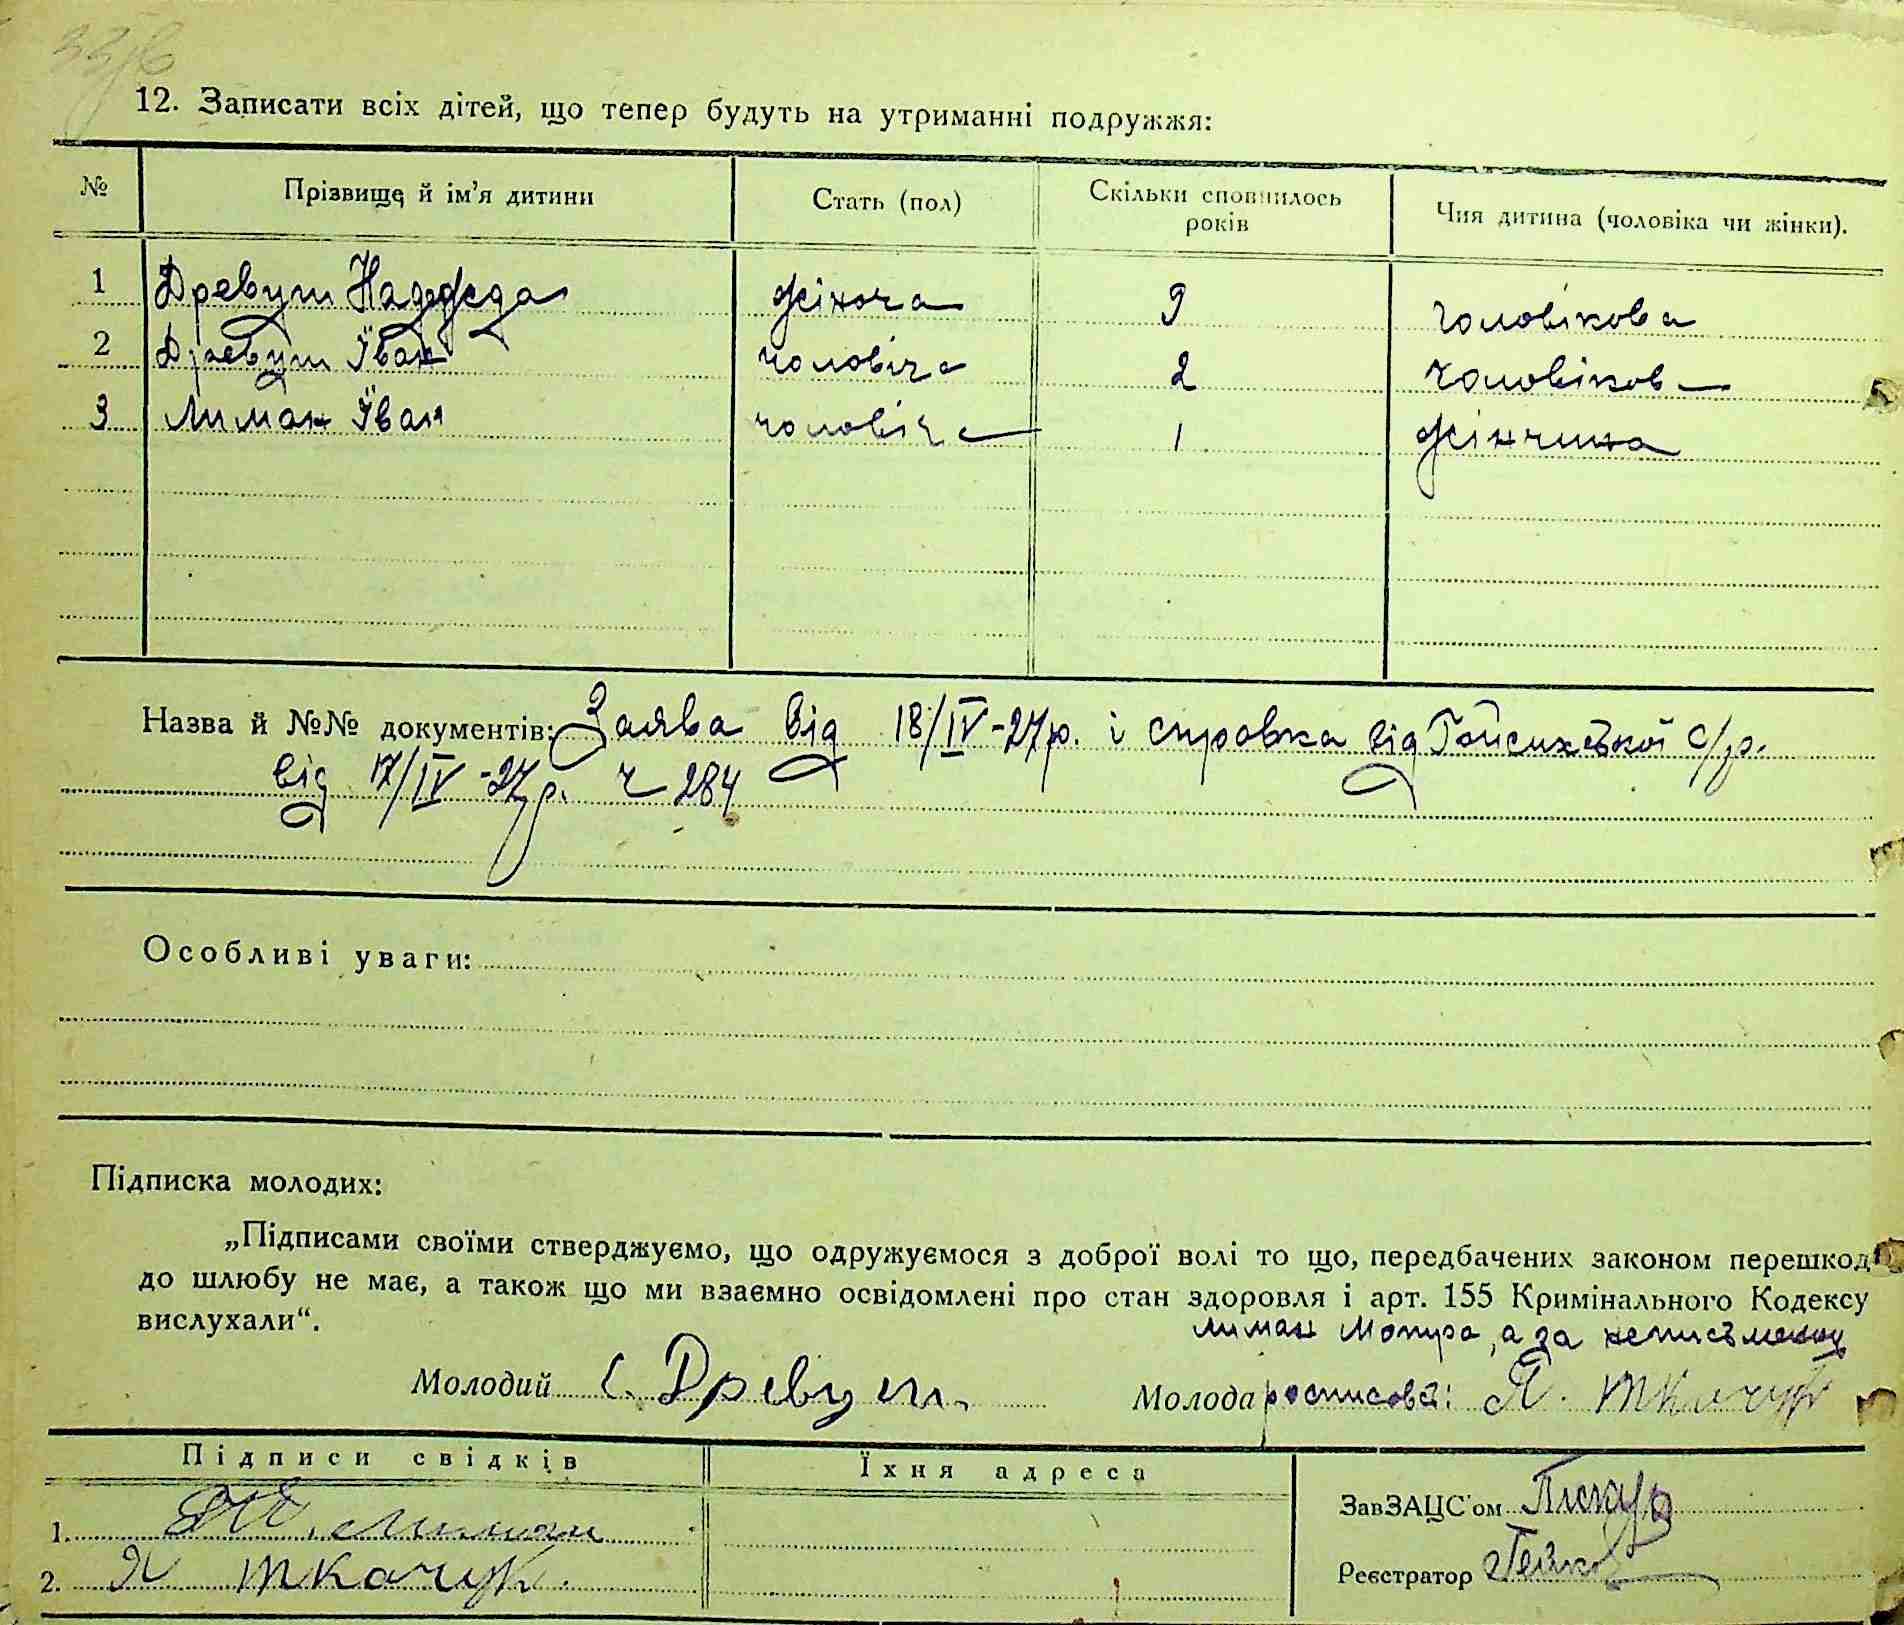 12. Записати всіх дітей, що тепер будуть на утриманні подружжя:
№ Прізвище й ім'я дитини Стать (пол) Скільки сповнилось років Чия дитина (чоловіка чи жінки).
1 Древуш Надежда жіноча 9 чоловікова
2 Древуш Іван чоловіча 2 чоловікова
3 Лиман Іван чоловіча 1 жінчина
Назва й №№ документів: Заява від 18/IV-27р. і справка від с/р.
від 17/IV-27р. ч 284
Особливі уваги:
Підписка молодих:
„Підписами своїми стверджуємо, що одружуємося з доброї волі то що, передбачених законом перешкод
до шлюбу не має, а також що ми взаємно освідомлені про стан здоровля і арт. 155 Кримінального Кодексу
вислухали“.
Лиман Мотря, а за неписьменну
Молодий Древуш Молода росписовсь: Я. Ткачук
Підписи свідків Їхня адреса
1. Лиман ЗавЗАЦС'ом
2. Я Ткачук Реєстратор